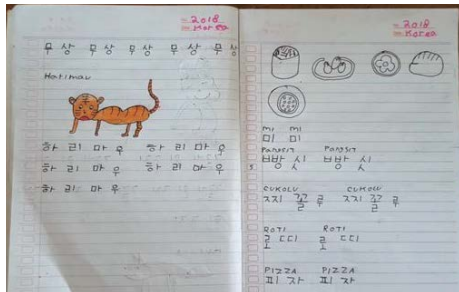 2018
Korea
무 상 무 상 무 상 무 상 무 상
Harimau
하 리 마 우 하 리 마 우
하 리 마 우 하 리 마 우
하 리 마 우
2018
Korea
mi mi
미 미
Pangsit Pangsit
빵 싯 빵 싯
CUKOLU CUKOLU
찌 꼴 루 찌 꼴 루
ROTI ROTI
로 띠 로 띠
PIZZA PIZZA
피 자 피 자